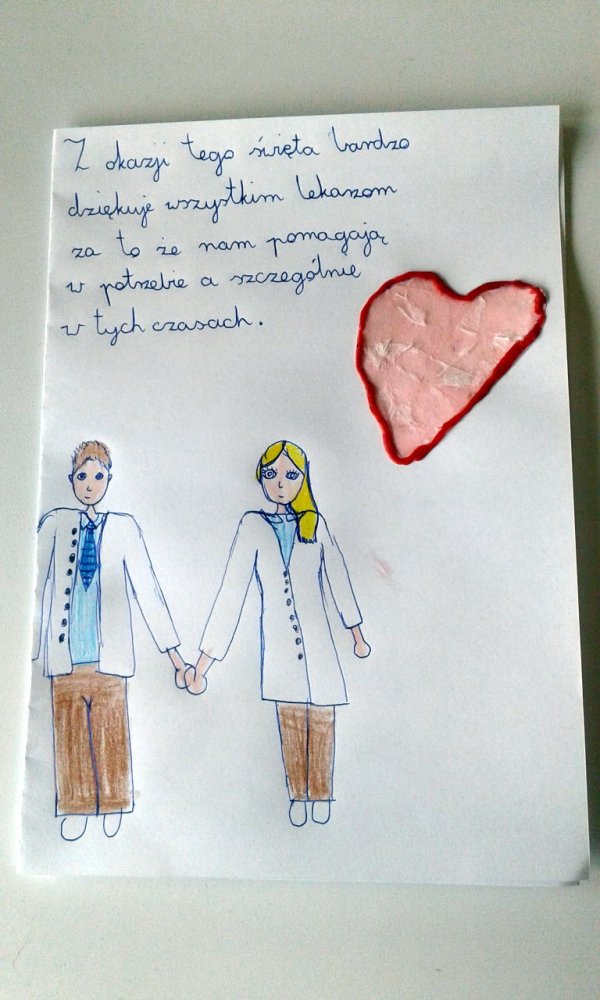 Z okazji tego święta bardzo
dziękuje wszystkim lekarzom
za to że nam pomagają
w potrzebie a szczególnie
w tych czasach.